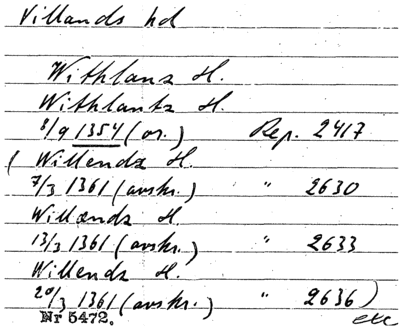 Villands hd
Withlanz H.
Withlantz H.
8/9 1354 (or.) Rep. 2417
( Willendz H.
7/3 1361 (avskr.) " 2630
Willændz H.
13/3 1361 (avskr.) " 2633
Willendz H.
20/3 1361 (avskr.) " 2636)
Nr 5472. etc